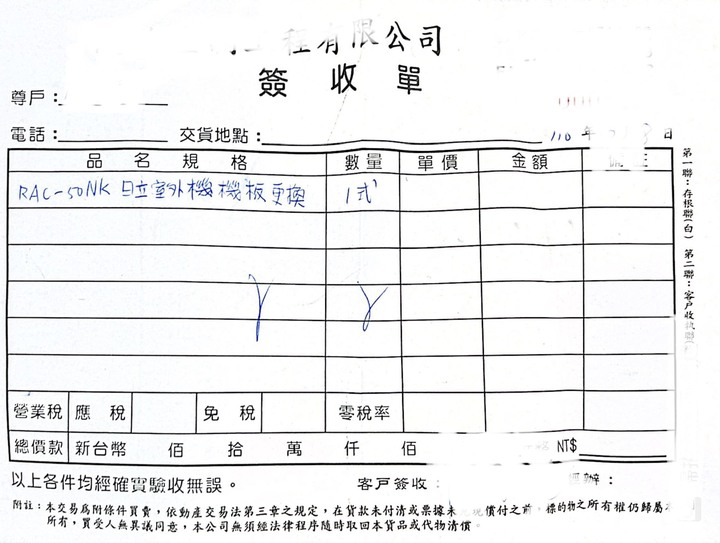 程有限公司
簽收單
尊戶：
電話： 交貨地點： 110 年
品名規格 數量 單價 金額
RAC-50NK 日立室外機機板更換 1式
營業稅 應稅 免稅 零稅率
總價款 新台幣 佰 拾 萬 仟 佰 NT$
以上各件均經確實驗收無誤。 客戶簽收： 辦：
附註：本交易為附條件買賣，依動產交易法第三章之規定，在貨款未付清或票據未 償付之前，標的物之所有權仍歸屬
所有，買受人無異議同意，本公司無須經法律程序隨時取回本貨品或代物清償。
第一聯：存根聯(白) 第二聯：客戶收執聯